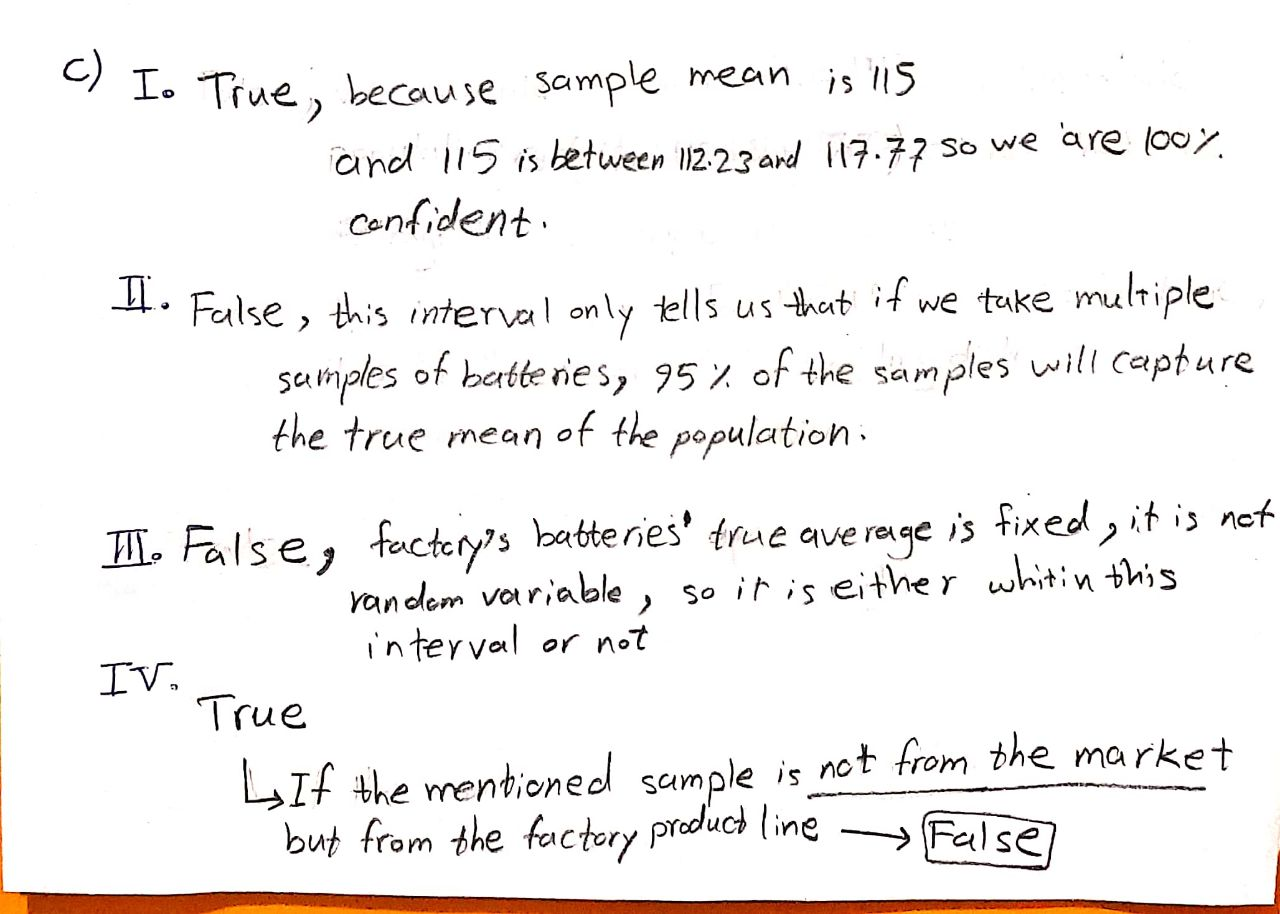 c) I. True, because sample mean is 115
and 115 is between 112.23 and 117.77 so we are 100%
confident.
II. False, this interval only tells us that if we take multiple
samples of batteries, 95% of the samples will capture
the true mean of the population.
III. False, factory's batteries' true average is fixed, it is not
random variable, so it is either whitin this
interval or not
IV.
True
↳ If the mentioned sample is not from the market
but from the factory product line → False